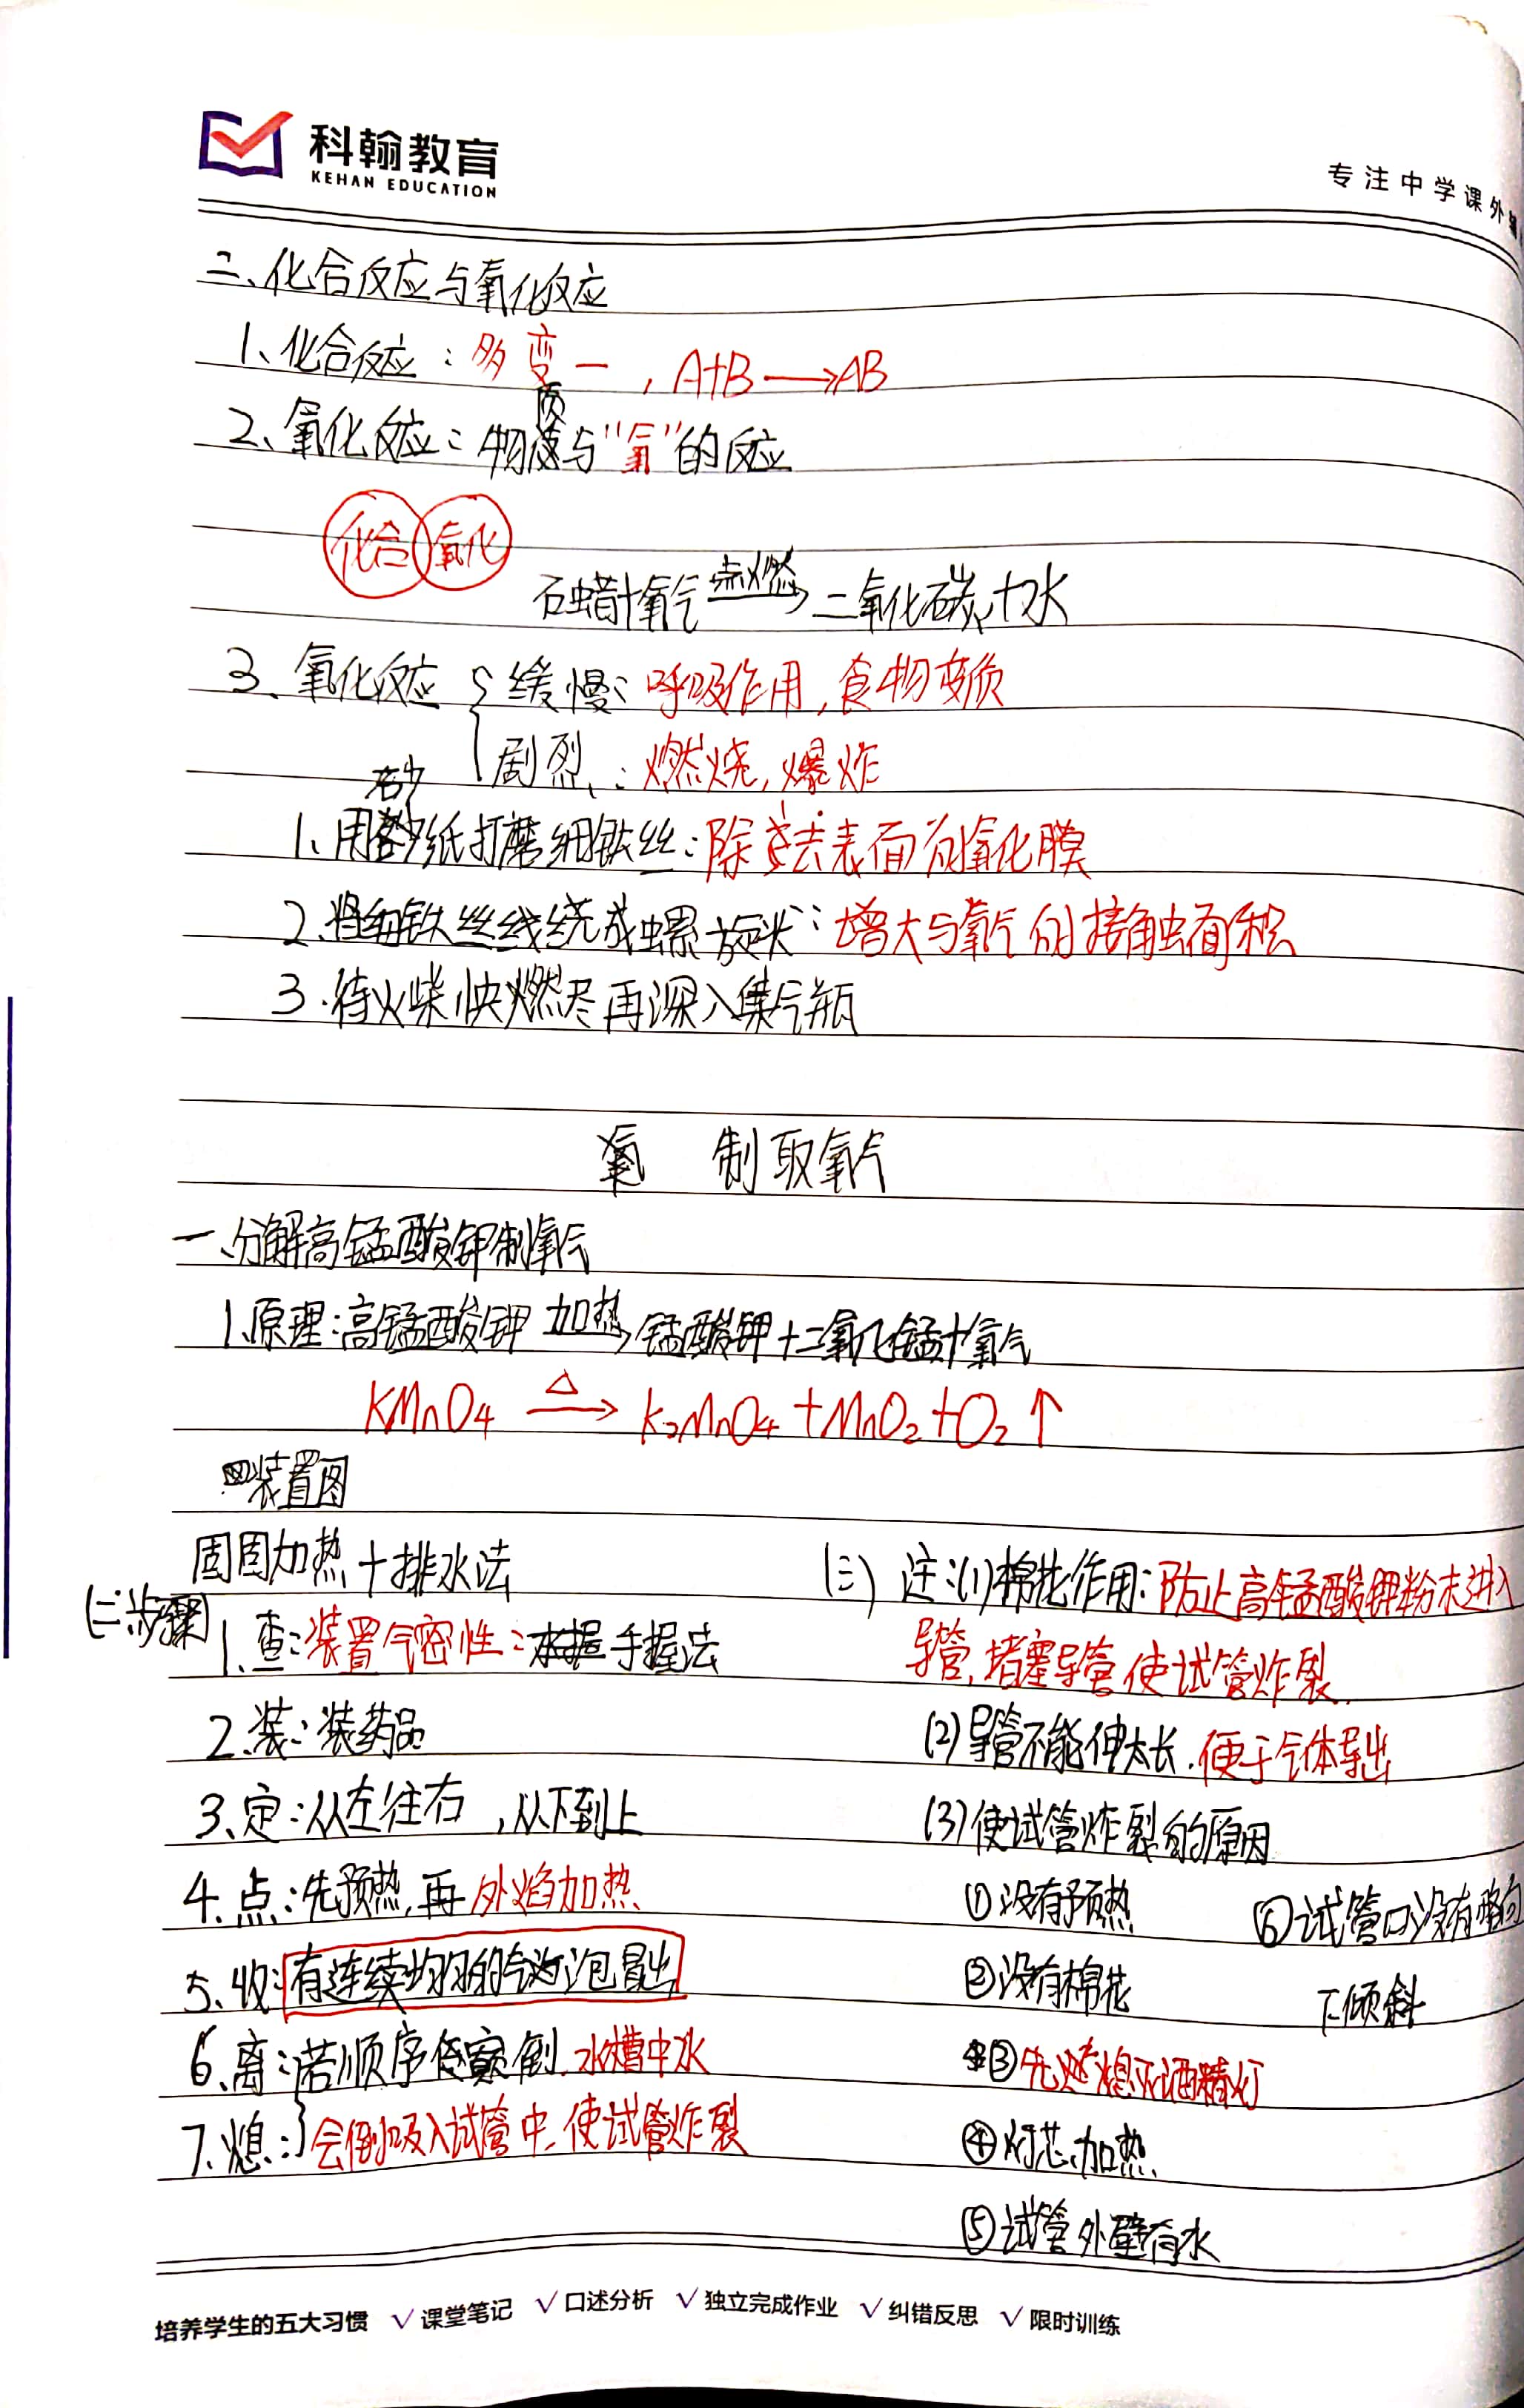 科翰教育
KEHAN EDUCATION
专注中学课外
二、化合反应与氧化反应
1、化合反应：多变一，A+B⟶AB
2、氧化反应：物质与“氧”的反应
化合 氧化
石蜡+氧气 点燃→ 二氧化碳+水
3、氧化反应 { 缓慢：呼吸作用，食物变质
剧烈：燃烧，爆炸
1、用砂纸打磨细铁丝：除去表面的氧化膜
2、将细铁丝线绕成螺旋状：增大与氧气的接触面积
3.待火柴快燃尽再深入集气瓶
制取氧气
一、分解高锰酸钾制氧气
1、原理：高锰酸钾 加热→ 锰酸钾+二氧化锰+氧气
KMnO4 △⟶ K2MnO4+MnO2+O2↑
装置图
固固加热+排水法
(二)步骤
1、查：装置气密性：手握法
2、装：装药品
3、定：从左往右，从下到上
4、点：先预热，再外焰加热
5、收：有连续均匀的气泡冒出
6、离：若顺序颠倒，水槽中水
7、熄：会倒吸入试管中，使试管炸裂
(三) 注：(1)棉花作用：防止高锰酸钾粉末进入
导管，堵塞导管使试管炸裂.
(2)导管不能伸太长.便于气体导出
(3)使试管炸裂的原因
①没有预热
②没有棉花
③先熄灭酒精灯
④灯芯加热
⑤试管外壁有水
⑥试管口没有略向
下倾斜
培养学生的五大习惯 √课堂笔记 √口述分析 √独立完成作业 √纠错反思 √限时训练